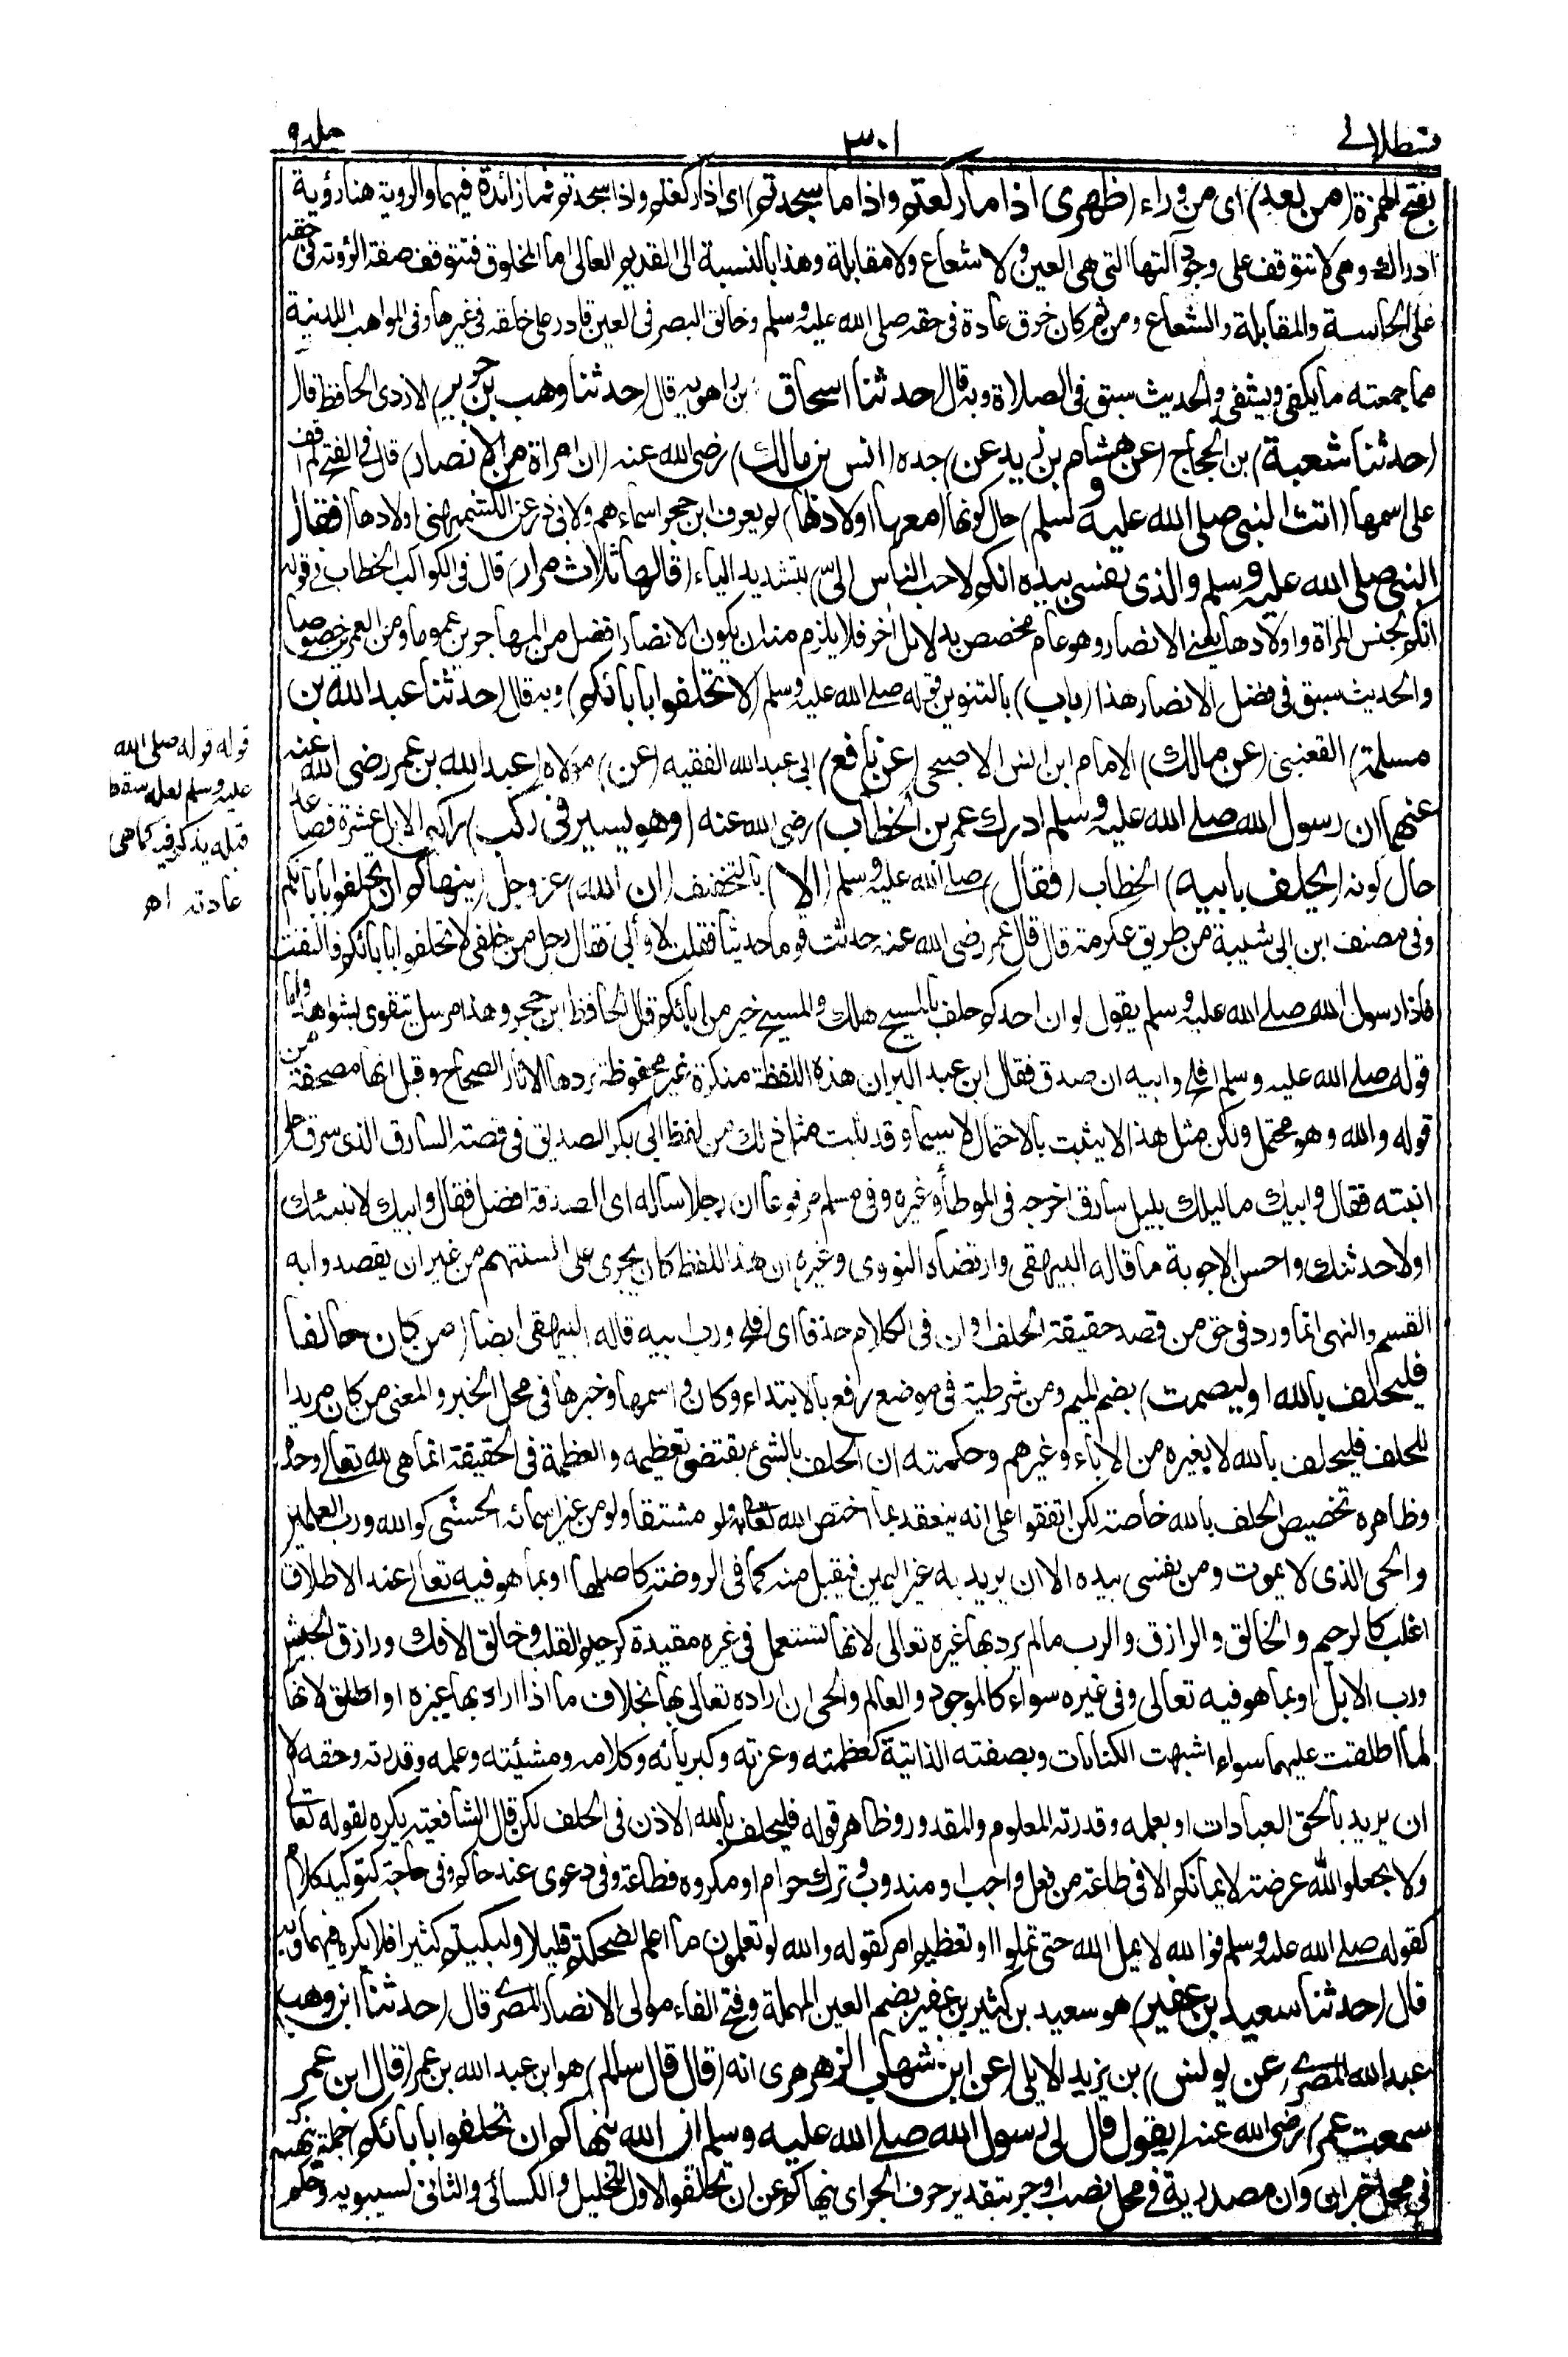 قسطلانے
٣٠١
جلد ٩
بفتح الهمزة (من بعد) اى من وراء (ظهرى) اذا ما ركعتم واذا ما سجدتم) اى اذا ركعتم واذا سجدتم فما زائدة فيهما والرؤية هنا رؤية
ادراك وهى لا تتوقف على وجود آلتها التى هى العين ولا شعاع ولا مقابلة وهذا بالنسبة الى القديم العالى اما المخلوق فتتوقف صفة الرؤية فى حقه
على الحاسة والمقابلة والشعاع ومن ثم كان خرق عادة فى حقه صلى الله عليه وسلم وخالق البصر فى العين قادر على خلقه فى غيرها وفى المواهب اللدنية
مما جمعته ما يكفى ويشفى والحديث سبق فى الصلاة وبه قال (حدثنا اسحاق) بن راهويه قال (حدثنا وهب بن جرير) الازدى الحافظ قال
(حدثنا شعبة) بن الحجاج (عن هشام بن زيد عن) جده (انس بن مالك) رضى الله عنه (ان امراة من الانصار) قال فى الفتح لم اقف
على اسمها (اتت النبى صلى الله عليه وسلم) حال كونها (معها اولادها) لم يعرف ابن حجر اسماءهم ولابى ذر عن الكشميهنى اولادها (فقال
النبى صلى الله عليه وسلم والذى نفسى بيده انكم لاحب الناس الىّ) بتشديد الياء (قالها ثلاث مرار) قال فى الكواكب الخطاب فى قوله
انكم لجنس المرأة واولادها يعنى الانصار وهو عام مخصص بدلائل أخر فلا يلزم منه ان يكون الانصار افضل من المهاجرين عموما ومن العمرين خصوصا
والحديث سبق فى فضل الانصار هذا (باب) بالتنوين قوله صلى الله عليه وسلم (لا تحلفوا بابائكم) وبه قال (حدثنا عبد الله بن
مسلمة) القعنبى (عن مالك) الامام ابن انس الاصبحى (عن نافع) ابى عبد الله الفقيه (عن) مولاه (عبد الله بن عمر رضى الله عنه
عنهما ان رسول الله صلى الله عليه وسلم ادرك عمر بن الخطاب) رضى الله عنه (وهو يسير فى ركب) راكبى الابل عشرة فصاعدا
حال كونه (يحلف بابيه) الخطاب (فقال) صلى الله عليه وسلم (الا) بالتخفيف (ان الله) عز وجل (ينهاكم ان تحلفوا بابائكم
وفى مصنف ابن ابى شيبة من طريق عكرمة قال قال عمر رضى الله عنه حدثت قوما حديثا فقلت لا وأبى فقال رجل من خلفى لا تحلفوا بابائكم فالتفت
فاذا رسول الله صلى الله عليه وسلم يقول لو ان احدكم حلف بالمسيح هلك والمسيح خير من ابائكم قال الحافظ ابن حجر وهذا مرسل يتقوى بشواهد واما
قوله صلى الله عليه وسلم افلح وابيه ان صدق فقال ابن عبد البر ان هذه اللفظة منكرة غير محفوظة تردها الاثار الصحاح وقيل انها مصحفة من
قوله والله وهو محتمل ولكن مثل هذا لا يثبت بالاحتمال لا سيما وقد ثبت مثل ذلك من لفظ ابى بكر الصديق فى قصة السارق الذى سرق حلى
ابنته فقال وابيك ما ليلك بليل سارق اخرجه فى الموطأ وغيره وفى مسلم مرفوعا ان رجلا ساله اى الصدقة افضل فقال وابيك لانبئنك
او لاحدثنك واحسن الاجوبة ما قاله البيهقى وارتضاه النووى وغيره ان هذا اللفظ كان يجرى على السنتهم من غير ان يقصدوا به
القسم والنهى انما ورد فى حق من قصد حقيقة الحلف او ان فى الكلام حذفا اى افلح ورب ابيه قاله البيهقى ايضا (من كان حالفا
فليحلف بالله او ليصمت) بضم الميم ومن شرطية فى موضع رفع بالابتداء وكان واسمها وخبرها فى محل الخبر والمعنى من كان مريدا
للحلف فليحلف بالله لا بغيره من الاباء وغيرهم وحكمته ان الحلف بالشئ يقتضى تعظيمه والعظمة فى الحقيقة انما هى لله تعالى وحده
وظاهره تخصيص الحلف بالله خاصة لكن اتفقوا على انه ينعقد بما اختص الله تعالى به ولو مشتقا ولو من غير اسمائه الحسنى كوالله ورب العلمين
والحى الذى لا يموت ومن نفسى بيده الا ان يريد به غير اليمين فيقبل منه كما فى الروضة كاصلها او بما هو فيه تعالى عند الاطلاق
اغلب كالرحيم والخالق والرازق والرب ما لم يرد بها غيره تعالى لانها تستعمل فى غيره مقيدة كرحيم القلب وخالق الافك ورازق الجيش
ورب الابل او بما هو فيه تعالى وفى غيره سواء كالموجود والعالم والحى ان اراده تعالى بها بخلاف ما اذا اراد بها غيره او اطلق لانها
لما اطلقت عليهما سواء اشبهت الكنايات وبصفته الذاتية كعظمته وعزته وكبريائه وكلامه ومشيئته وعلمه وقدرته وحقه الا
ان يريد بالحق العبادات او بعلمه وقدرته المعلوم والمقدور وظاهر قوله فليحلف بالله الاذن فى الحلف لكن قال الشافعية يكره لقوله تعالى
ولا تجعلوا الله عرضة لايمانكم الا فى طاعة من فعل واجب او مندوب وترك حرام او مكروه فطاعة وفى دعوى عند حاكم وفى حاجة كتوكيد كلام
كقوله صلى الله عليه وسلم فوالله لا يمل الله حتى تملوا او تعظيم امر كقوله والله لو تعلمون ما اعلم لضحكتم قليلا ولبكيتم كثيرا فلا يكره فيهما وبه
قال (حدثنا سعيد بن عفير) هو سعيد بن كثير بن عفير بضم العين المهملة وفتح الفاء مولى الانصار المصرى قال (حدثنا ابن وهب)
عبد الله المصرى (عن يونس) بن يزيد الايلى (عن ابن شهاب) الزهرى انه (قال قال سالم) هو ابن عبد الله بن عمر (قال ابن عمر
سمعت عمر) رضى الله عنه (يقول قال لى رسول الله صلى الله عليه وسلم ان الله ينهاكم ان تحلفوا بابائكم) جملة ينهاكم
فى محل خبر ان وان مصدرية فى محل نصب او جر بتقدير حرف الجر اى ينهاكم عن ان تحلفوا الاول للخليل والكسائى والثانى لسيبويه وحكم
قوله قوله صلى الله
عليه وسلم لعله سقط
قبله يذكر فيه كما هى
عادته اه